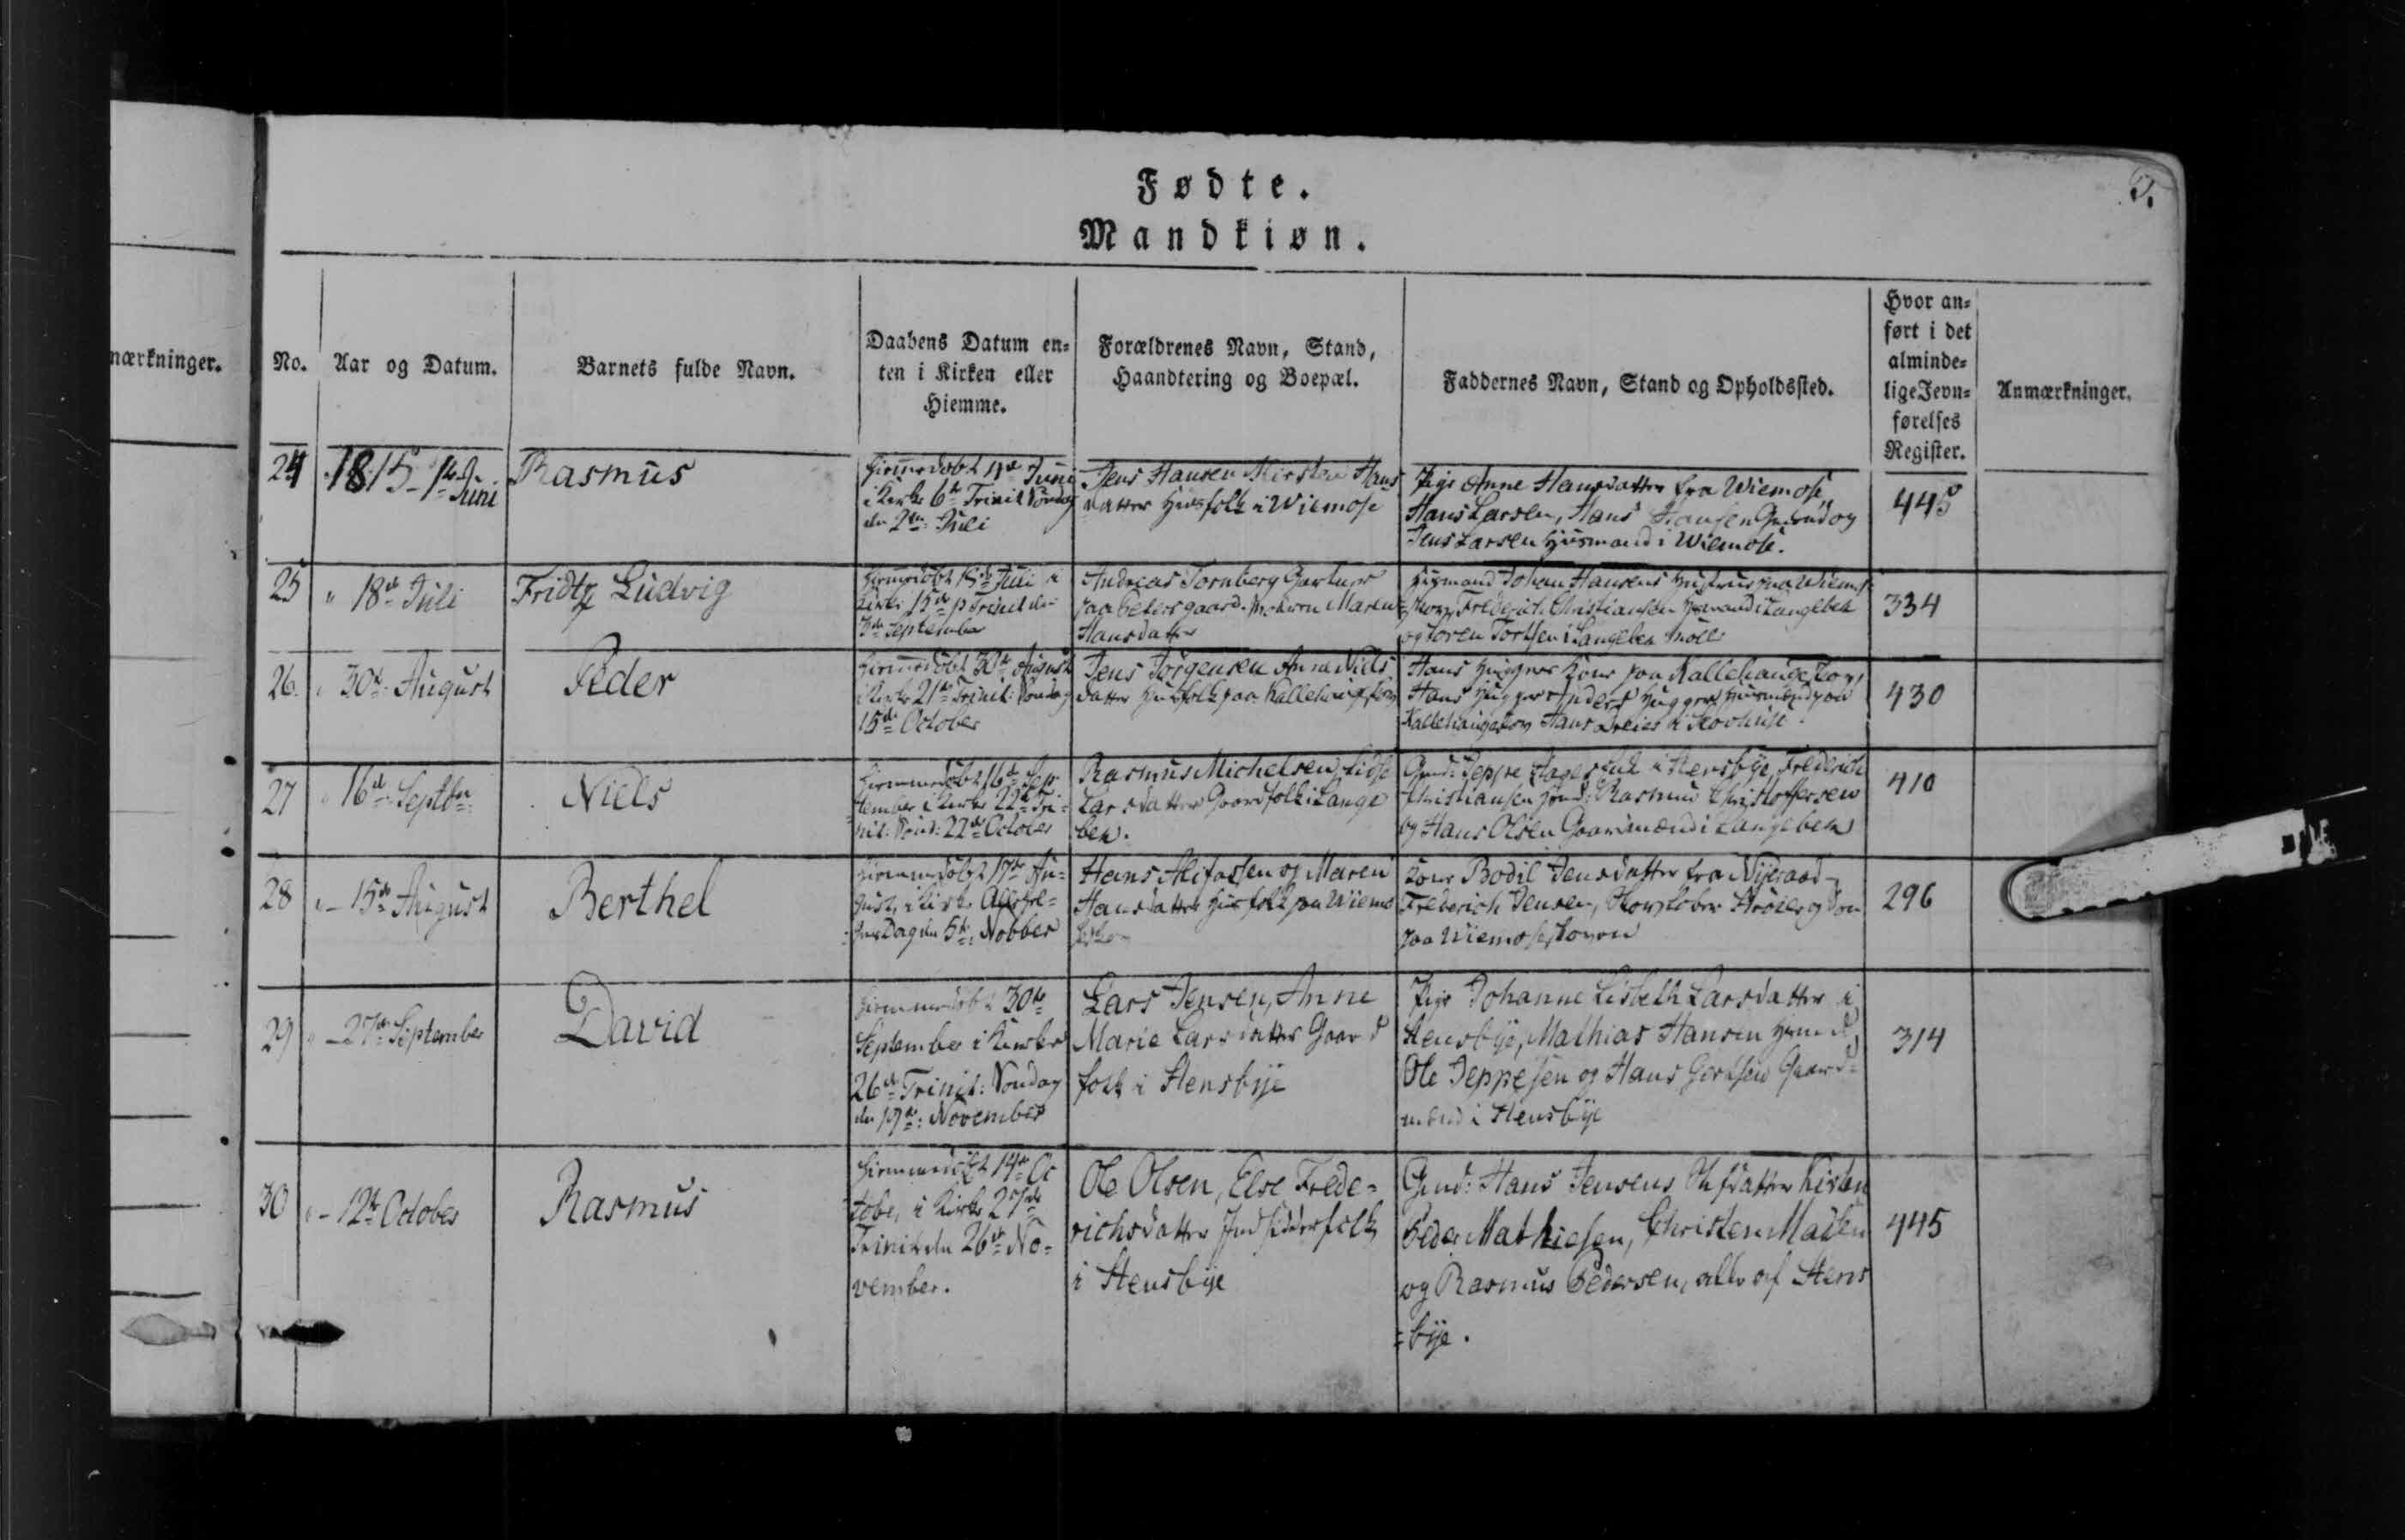 Fødte.
Mandkiøn.
nærkninger.
No.
Aar og Datum.
Barnets fulde Navn.
Daabens Datum en=
ten i Kirken eller
Hiemme.
Forældrenes Navn, Stand,
Haandtering og Boepæl.
Faddernes Navn, Stand og Opholdssted.
Hvor an=
ført i det
alminde=
lige Jevn=
førelses
Register.
Anmærkninger.
24
1815 - 1te Juni
Rasmus
hiemmedøbt 11te Juni
i Kirke 6te Trinit Søndag
den 2den Juli
Jens Hansen Kirsten Hans
datter Huusfolk i Wiemose
Pige Anne Hansdatter fra Wiemose,
Hans Larsen, Hans Hansen og
Jens Larsen Huusmænd i Wiemose.
445
25
" 18de Juli
Fridtz Ludvig
Hiemmedøbt Juli i
Kirke 15de p Trinit den
3de September
Andreas Tornberg Gartner
paa Petersgaard. Maren
Hansdatter
Huusmand Johan Hansens Hustrue
Frederich Christiansen Huusmand i Langebek
og Søren Tortsen i Langebek Mølle
334
26.
" 30te August
Peder
Hiemmedøbt 30te August
i Kirke 21de Trinit: Søndag
15de October
Jens Jörgensen Anne Niels
datter Huusfolk paa Kallehauge skov
Hans Huggers Kone paa Kallehauge skov,
Hans Hugger Anders Hugger Huusmænd paa
Kallehaugeskov Hans Dreier i Skovhuse.
430
27
" 16de Septbr
Niels
Hiemmedøbt 16de Sep-
tember i Kirke 22de Tri-
nit: Sönd: 22de October
Rasmus Michelsen, Lidse
Larsdatter Gaardfolk i Lange
bek.
Gmd: Jeppe i Stensbÿe, Frederich
Christiansen Hmd: Rasmus Christoffersen
og Hans Olsen Gaardmænd i Langebek
410
28
" - 15de August
Berthel
Hiemmedøbt 17de Au-
gust, i Kirke Allehel-
gens Dag den 5te Novbber
Hans og Maren
Hansdatter Huusfolk paa Wiemose
skov
Kone Bodil Jensdatter fra Nÿeraad
Frederich Jensen, Skovløber og Søn
paa Wiemose skoven
296
29
" - 27de September
David
Hiemmedøbt 30te
September i Kirke
26de Trinit: Søndag
den 19de: November
Lars Jensen, Anne
Marie Larsdatter Gaard
folk i Stensbÿe
Pige Johanne Lisbeth Larsdatter i
Stensbÿe, Mathias Hansen Hmd,
Ole Jeppesen og Hans Gertsen Gaard=
mænd i Stensbÿe
314
30
" - 12te October
Rasmus
Hiemmedøbt 14de Oc
tober, i Kirke 27de
Trinit den 26de No=
vember.
Ole Olsen, Else Frede=
richsdatter Indsidderfolk
i Stensbÿe
Gmd: Hans Jensens datter Kirsten
Peder Mathiesen, Christen Madsen
og Rasmus Pedersen, alle af Stens
=bÿe.
445